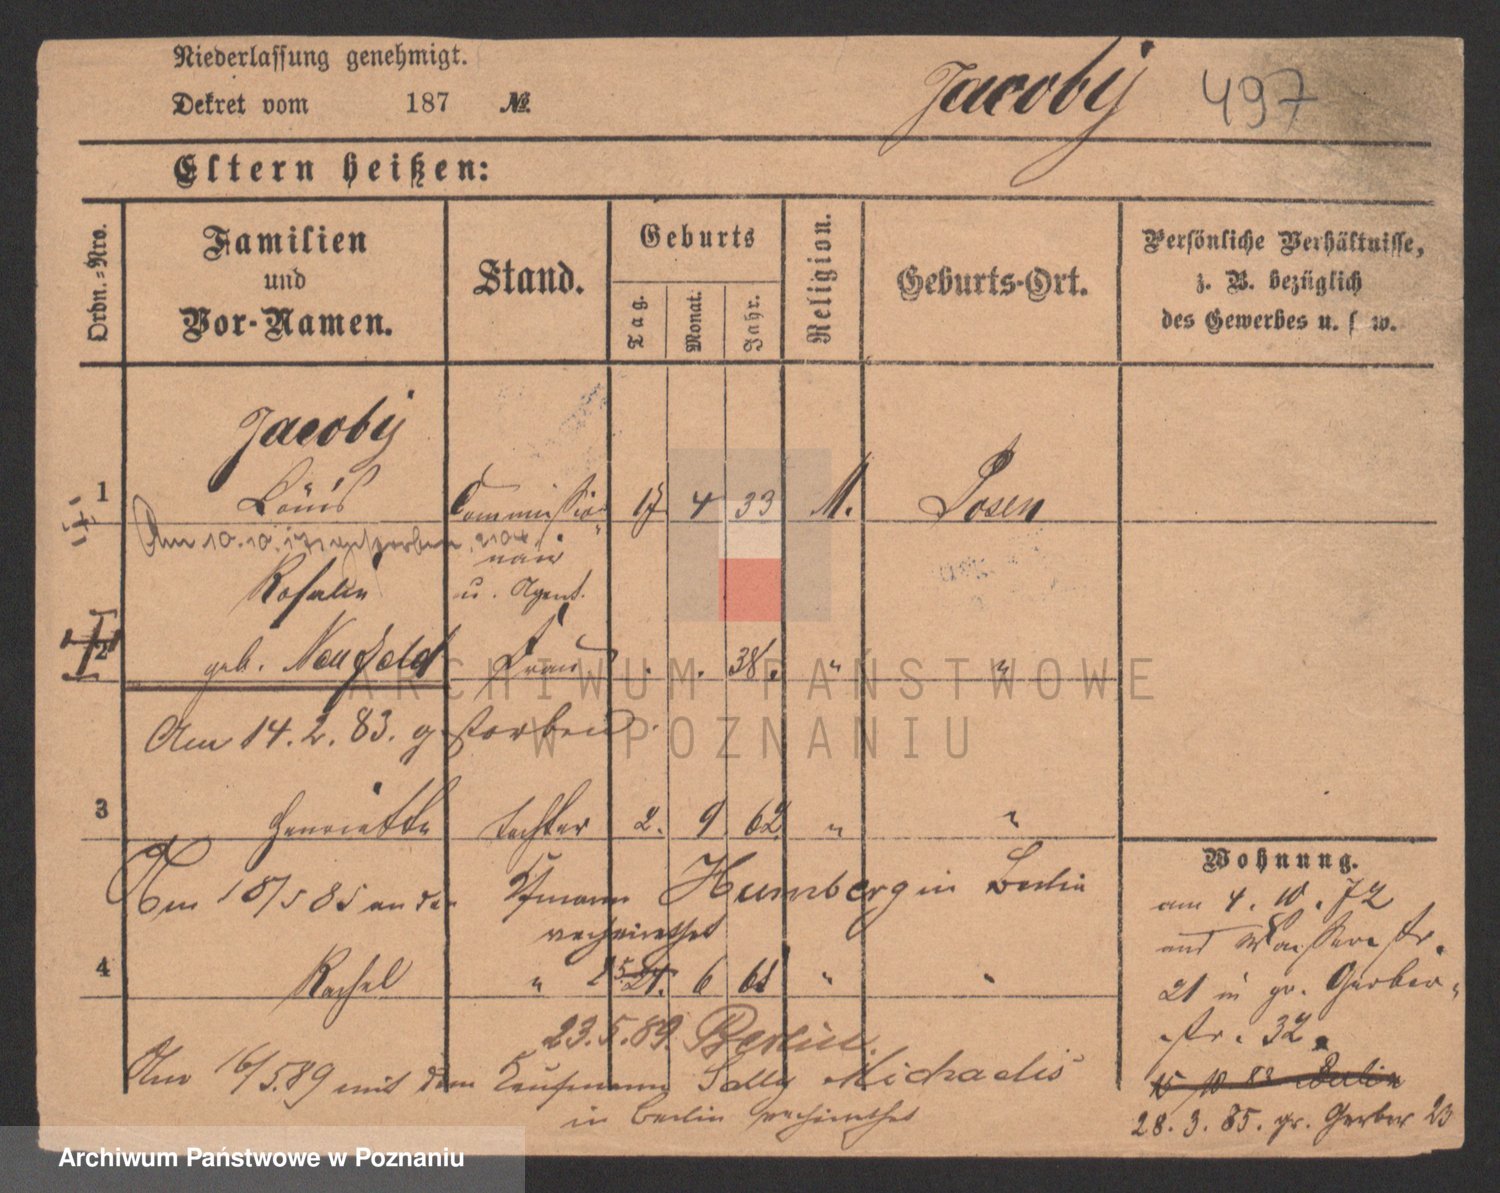 Niederlassung genehmigt.
Dekret vom 187 №.
Jacoby 497
Eltern heißen:
Ordn.-Nro.
Familien
und
Vor-Namen.
Stand.
Geburts
Tag.
Monat.
Jahr.
Religion.
Geburts-Ort.
Persönliche Verhältnisse,
z. B. bezüglich
des Gewerbes u. s. w.
Jacoby
1 Louis Commissio- 17 4 33 M. Posen
Am 10.10. gestorben
när
Rosalie u. Agent.
2 geb. Neufeld Frau . . 38. " "
Am 14.2.83. gestorben.
3 Henriette Tochter 2. 9 62 " "
Am 18/5 85 an den Kfmann Humberg in Berlin
verheirathet
4 Rachel " 6 " "
23.5.89. Berlin.
Am 16/5.89 mit dem Kaufmann Sally Michaelis
in Berlin verheirathet
Wohnung.
am 4.10.72
Wasserstr.
21 in gr. Gerber-
str. 32.
15 10 82 Berlin
28.3.85. gr. Gerber 23
ARCHIWUM PAŃSTWOWE
W POZNANIU
Archiwum Państwowe w Poznaniu